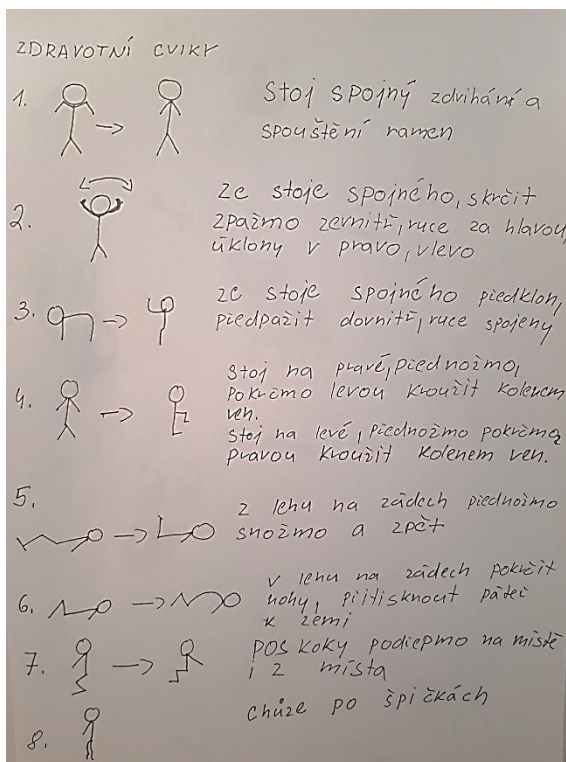 ZDRAVOTNÍ CVIKY
1. Stoj spojný zdvihání a
spouštění ramen
2. ze stoje spojného, skrčit
zpažmo zevnitř, ruce za hlavou,
úklony v pravo, vlevo
3. ze stoje spojného předklon,
předpažit dovnitř, ruce spojeny
4. Stoj na pravé, přednožmo,
pokrčmo levou kroužit kolenem
ven.
Stoj na levé, přednožmo pokrčmo,
pravou kroužit kolenem ven.
5. z lehu na zádech přednožmo
snožmo a zpět
6. v lehu na zádech pokrčit
nohy, přitisknout páteř
k zemi
7. POSKOKY podřepmo na místě
i z místa
8. chůze po špičkách